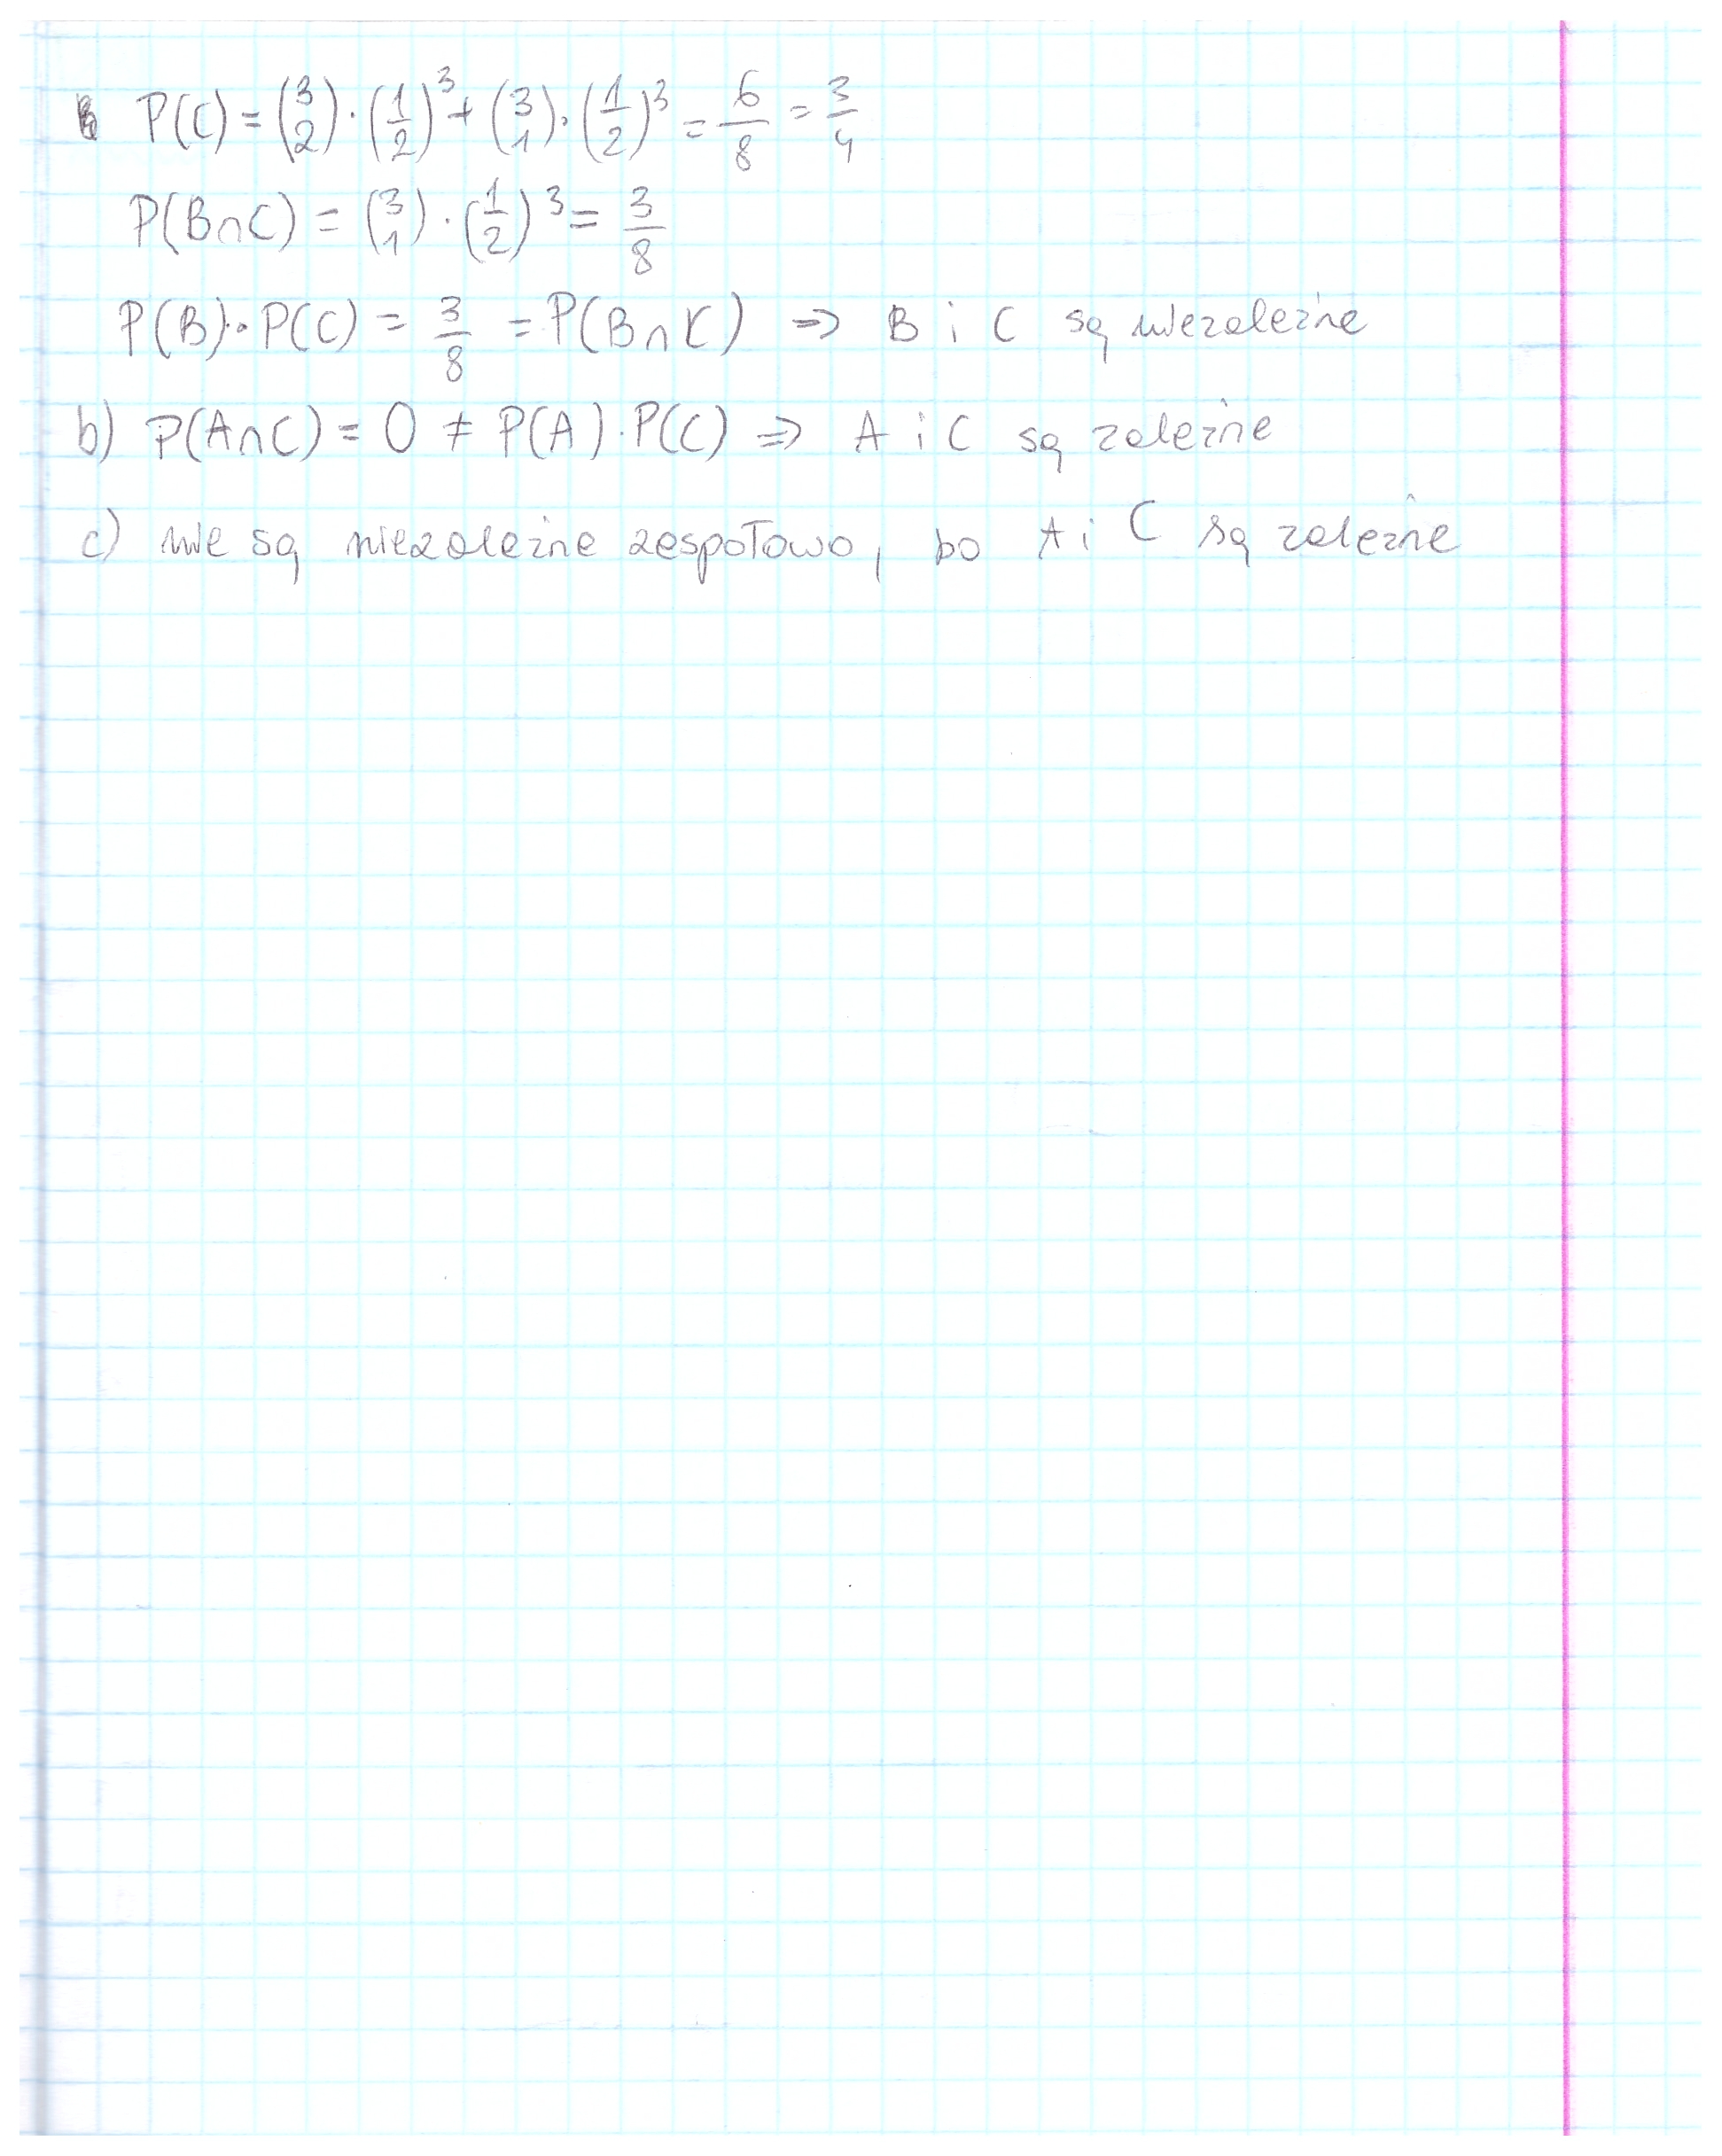 P(C) = (3 2) · (1/2)^3 + (3 1) · (1/2)^3 = 6/8 = 3/4
P(B∩C) = (3 1) · (1/2)^3 = 3/8
P(B) · P(C) = 3/8 = P(B∩C) => B i C są niezależne
b) P(A∩C) = 0 ≠ P(A) · P(C) => A i C są zależne
c) nie są niezależne zespołowo, bo A i C są zależne